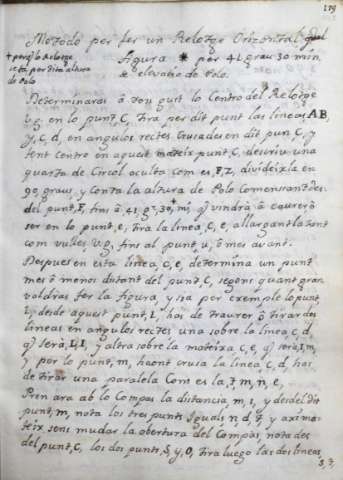 119
Metodo per fer un Relotge Orizontal Igual
+ per q̃ lo Relotge
se fa per dita altura
de Polo
figura * per 41 grau 30 min.
de elevatio de Polo.
Determinaras â ton gust lo Centro del Relotge
v.g. en lo punt, C, tira per dit punt las lineas, A B,
y, C, d, en angulos rectes Crusades en dit pun, C, y
fent centro en aquest mateix punt, C, descriu una
quarta de Circol oculta com es, F, Z, divideixla en
90, graus, y conta la altura de Polo Comensant des
del punt, F, fins â, 41, g.s 30, mi, q̃ vindrà â caurer ô
ser en lo punt, e, tira la linea, C, e, allargantla tant
com vulles v.g, fins al punt, u, ô mes avant.
Despues en esta linea, C, e, determina un punt
mes ô menos distant del punt, C, segons quant gran
voldras fer la figura, y sia per exemple lo punt,
I, y desde aquest punt, I, has de traurer ô tirar dos
lineas en angulos rectes una sobre la linea, c, d,
q̃ serà, I, i, y altra sobre la mateixa c, e, q̃ serà, I, m,
y por lo punt, m, haont crusa la linea, c, d, has
de tirar una paralela Com es la, f, m, n, e,
Pren ara ab lo Compas la distancia, m, i, y desdel dit
punt, m, nota los tres punts Iguals n, d, f, y axi ma-
teix sens mudar la obertura del Compas, nota des
del punt, C, los dos punts, S, y, O, tira luego las dos lineas
S, f,